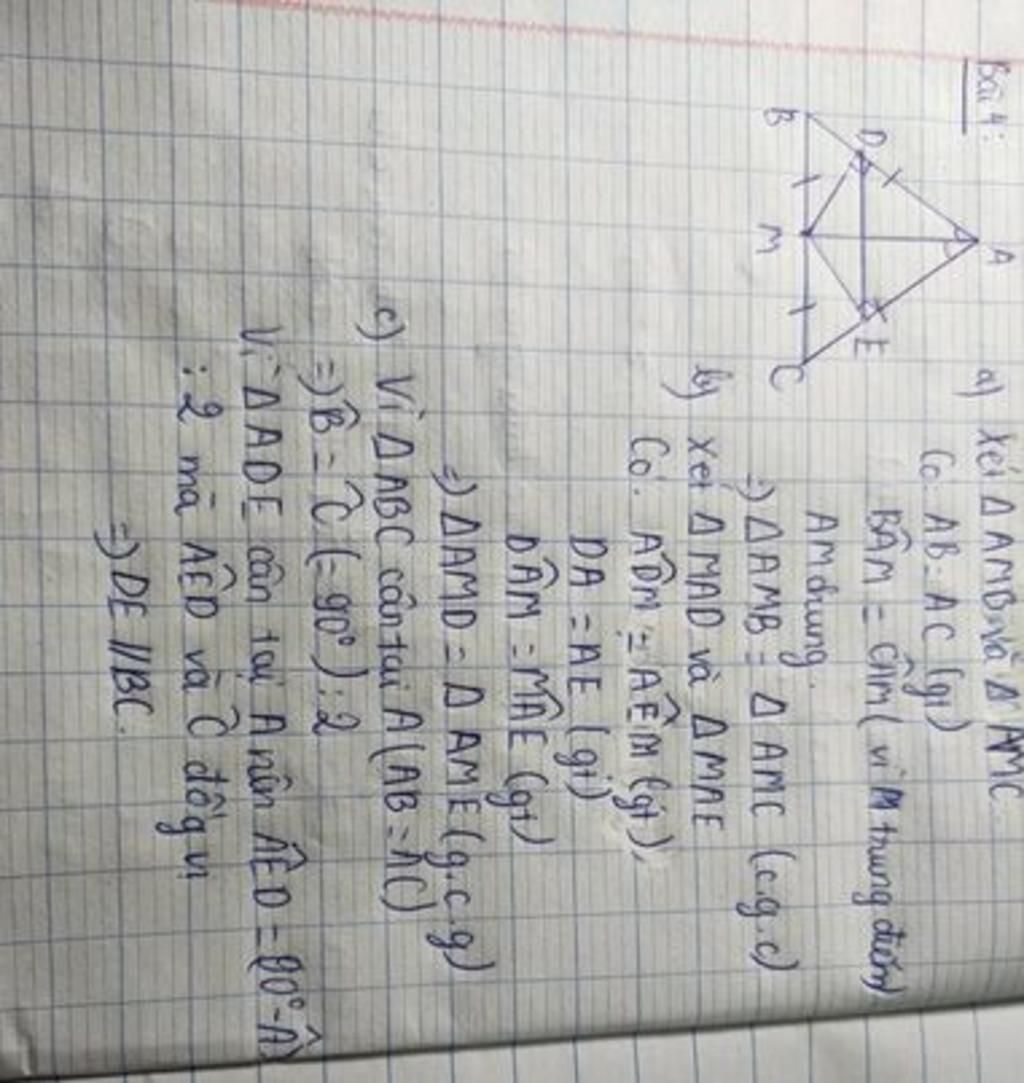 Bài 4:
A
D
E
B
M
C
a) Xét Δ AMB và Δ AMC
Có: AB = AC (gt)
BÂM = CÂM ( vì M trung điểm)
AM chung.
=) Δ AMB = Δ AMC (c.g.c)
b) Xét Δ MAD và Δ MAE
Có: AD̂M = AÊM (gt),
DA = AE (gt)
DÂM = MÂE (gt)
=) Δ AMD = Δ AME (g.c.g)
c) Vì Δ ABC cân tại A (AB = AC)
=) B̂ = Ĉ (= 90°) : 2
Vì Δ ADE cân tại A nên AÊD = (90° - Â)
: 2 mà AÊD và Ĉ đồng vị
=) DE // BC.